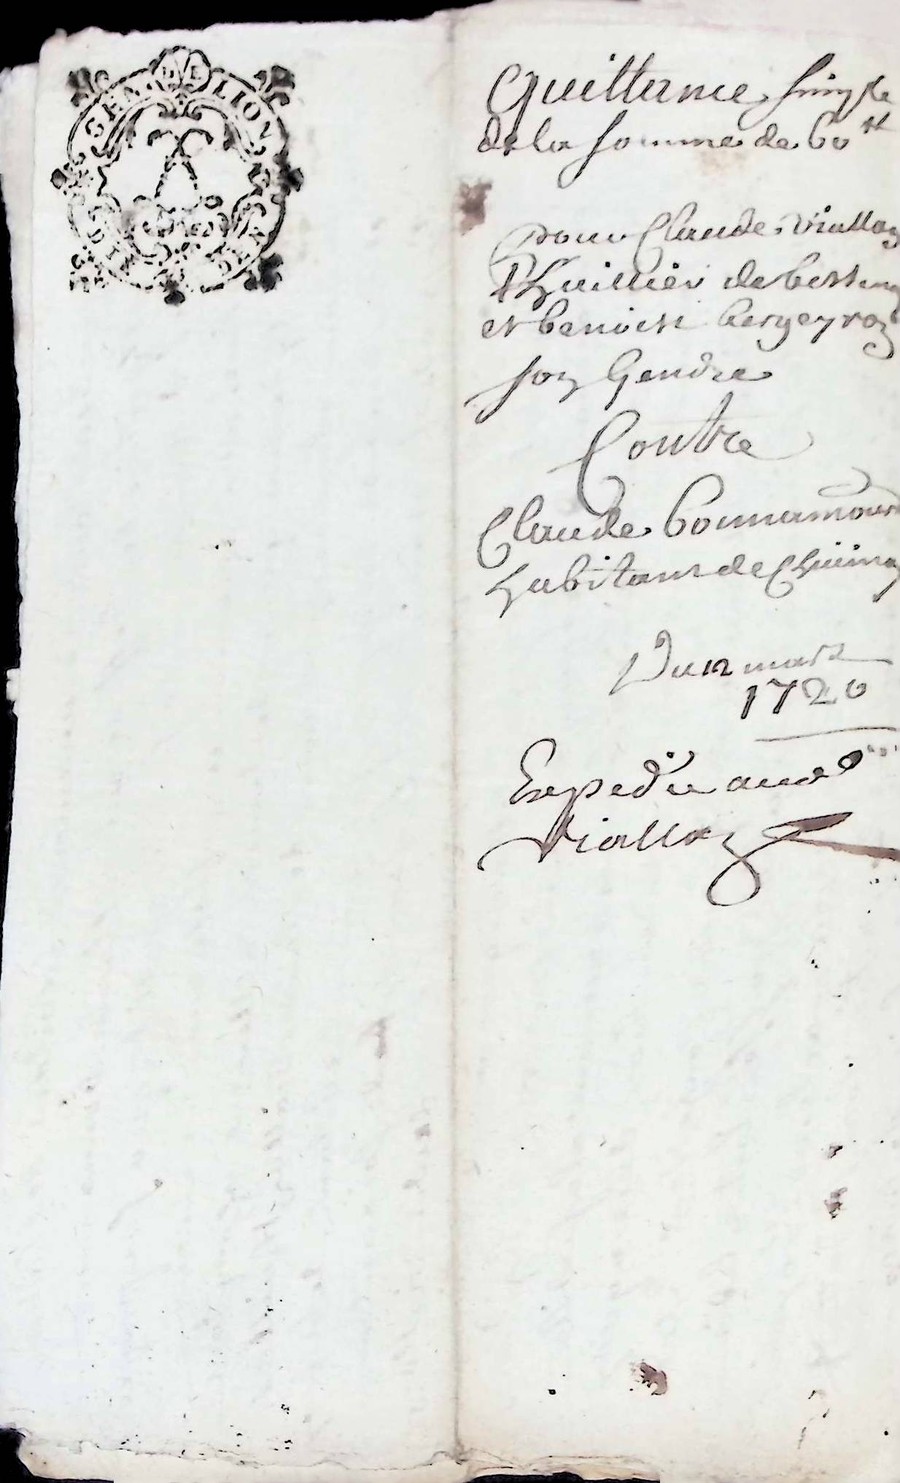 GEN DE LION
Quittance simple
de la somme de 60 tt
pour Claude Viallon
Lhuillier de
et benoist bergeyron
son Gendre
Contre
Claude bonnamour
habitant de
Du 12 mars
1720
Expedié aud
Viallon